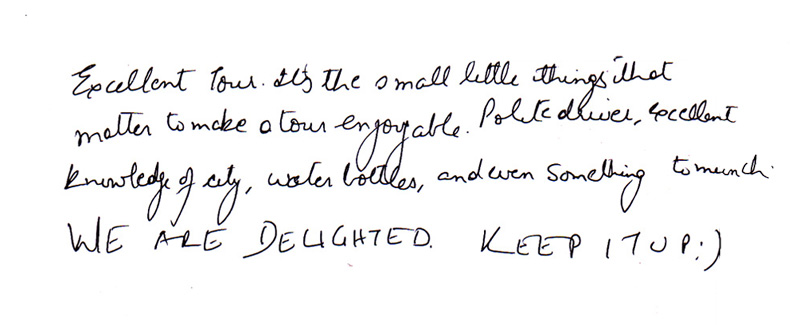 Excellent Tour. It's the small little things that
matter to make a tour enjoyable. Polite driver, excellent
knowledge of city, water bottles, and even something to munch.
WE ARE DELIGHTED. KEEP IT UP :)